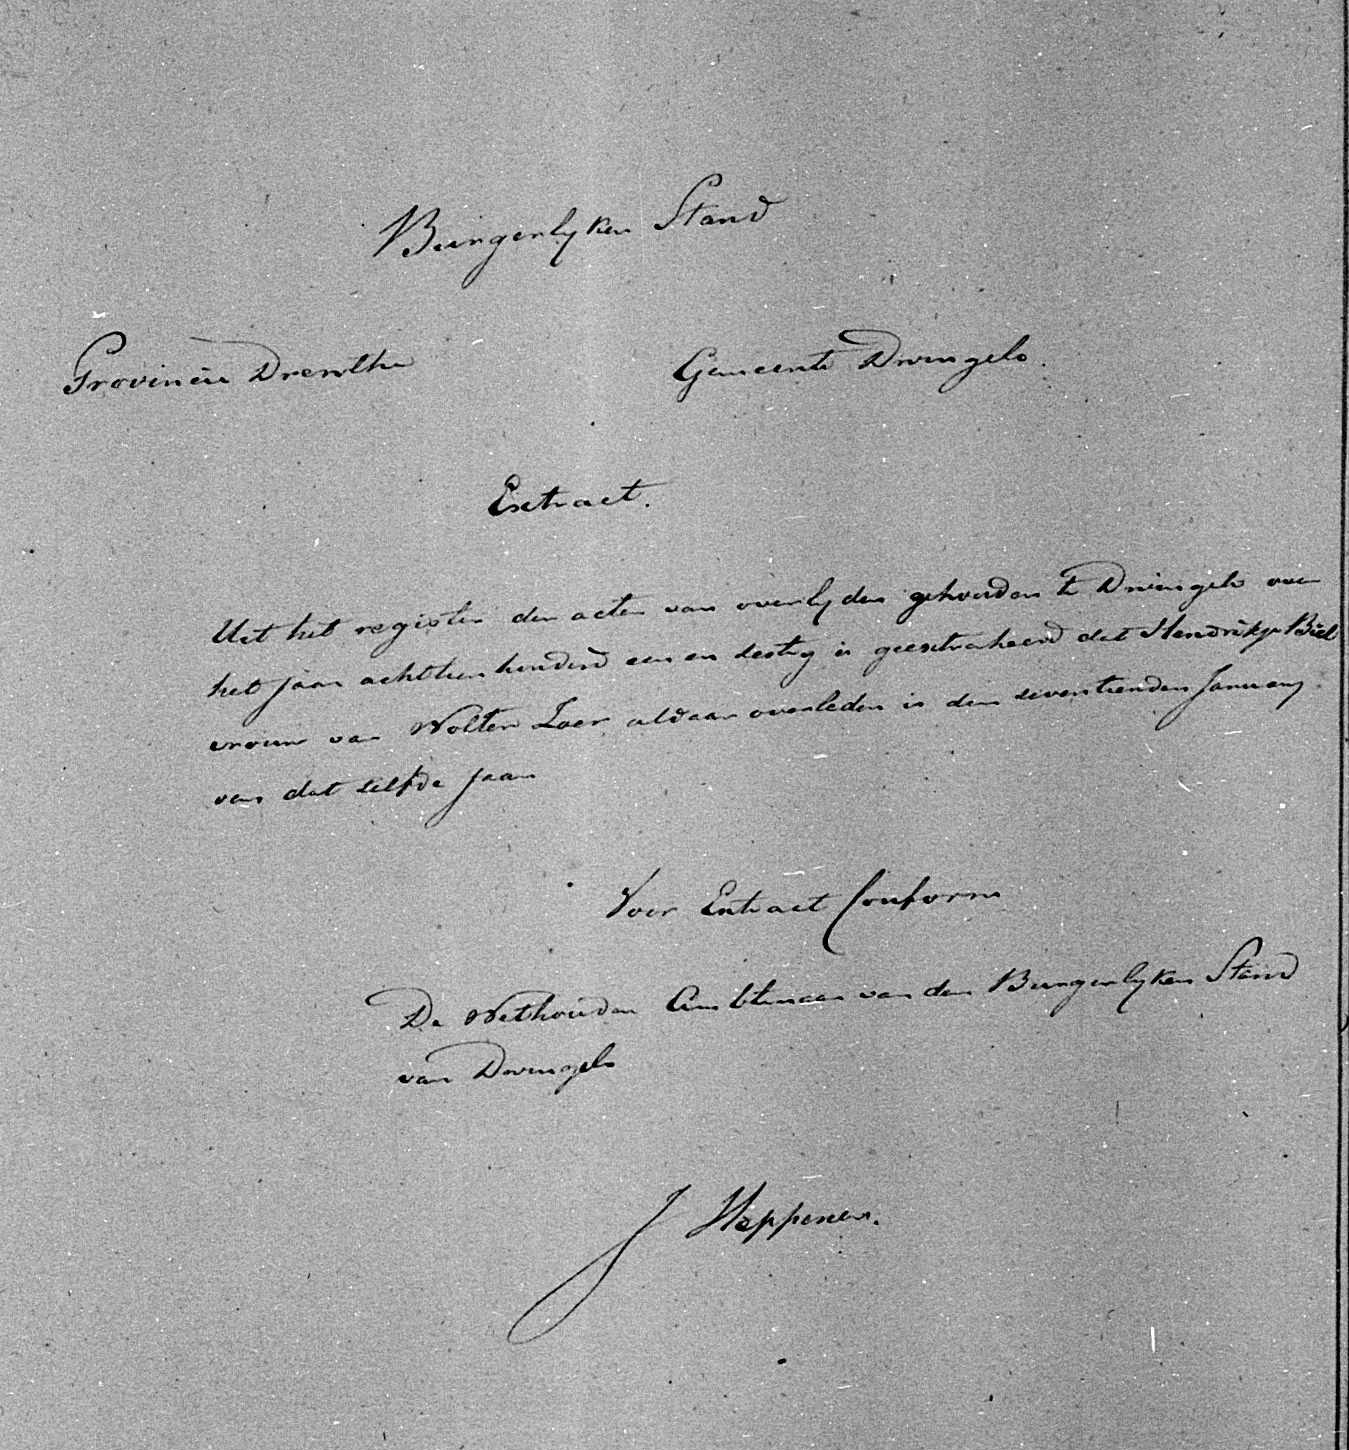 Burgerlyken Stand
Provincie Drenthe Gemeente Dwingelo.
Extract.
Uit het register der acten van overlyden gehouden te Dwingelo over
het jaar achttienhonderd een en sestig is geextraheerd dat Hendrikje Biel
vrouw van Wolter Zoer aldaar overleden is den seventienden January
van dat selfde jaar
Voor Extract Conform
De Wethouder Ambtenaar van den Burgerlyken Stand
van Dwingelo
J